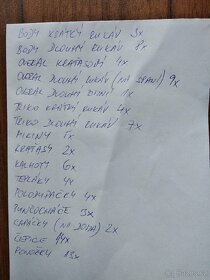 BODY KRÁTKÝ RUKÁV 3x
BODY DLOUHÝ RUKÁV 8x
OVERAL KRAŤASOVÝ 4x
OVERAL DLOUHÝ RUKÁV (NA SPANÍ) 9x
OVERAL DLOUHÝ ZIMNÍ 1x
TRIKO KRÁTKÝ RUKÁV 4x
TRIKO DLOUHÝ RUKÁV 7x
MIKINY 5x
KRAŤASY 2x
KALHOTY 6x
TEPLÁKY 4x
POLODUPAČKY 4x
PUNČOCHÁČE 3x
CAPÁČKY (NA DOMA) 2x
ČEPICE 14x
PONOŽKY 13x